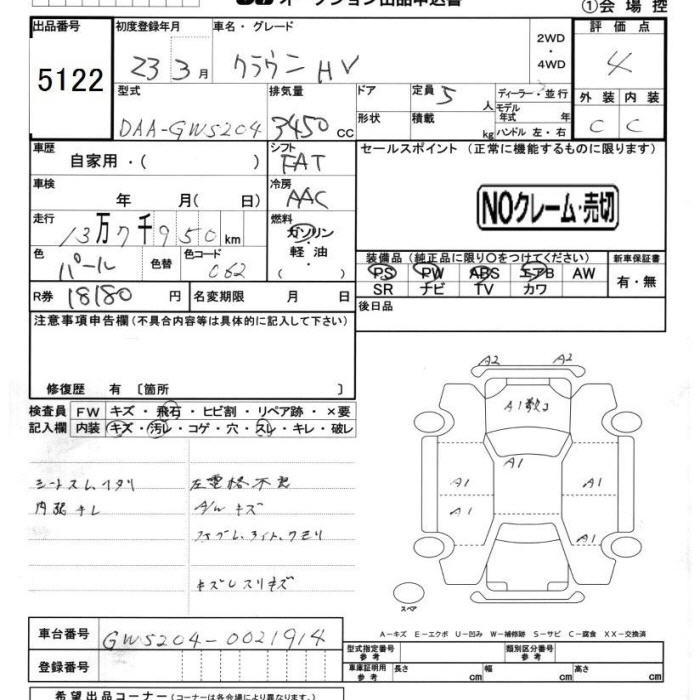 オークション出品申込書
①会場控
出品番号
5122
初度登録年月
23 3月
車名・グレード
クラウン HV
2WD
・
4WD
評価点
4
外装 内装
C C
型式
DAA-GWS204
排気量
3450 CC
ドア
形状
定員 5 人
積載 kg
ディーラー・並行
モデル年式 年
ハンドル 左・右
車歴
自家用・( )
シフト
FAT
セールスポイント (正常に機能するものに限ります)
車検
年 月( 日)
冷房
AAC
NOクレーム・売切
走行
13万7千950km
燃料
ガソリン
軽油
・( )
色
パール
色替
色コード
062
装備品(純正品に限り○をつけてください)
PS PW ABS エアB AW
SR ナビ TV カワ
新車保証書
有・無
R券 18180 円
名変期限 月 日
後日品
注意事項申告欄(不具合内容等は具体的に記入して下さい)
修復歴 有 〔箇所 〕
検査員
記入欄
FW キズ・飛石・ヒビ割・リペア跡・×要
内装 キズ・汚レ・コゲ・穴・スレ・キレ・破レ
左電格不良
A/W キズ
キズレスリキズ
A2 A2
A1数コ
A1
A1 A1
A1
A1
スペア
A－キズ E－エクボ U－凹み W－補修跡 S－サビ C－腐食 XX－交換済
車台番号
GWS204-0021914
登録番号
型式指定番号
参考
類別区分番号
参考
車庫証明用
参考
長さ cm 幅 cm 高さ cm
希望出品コーナー(コーナーは各会場により異なります。)